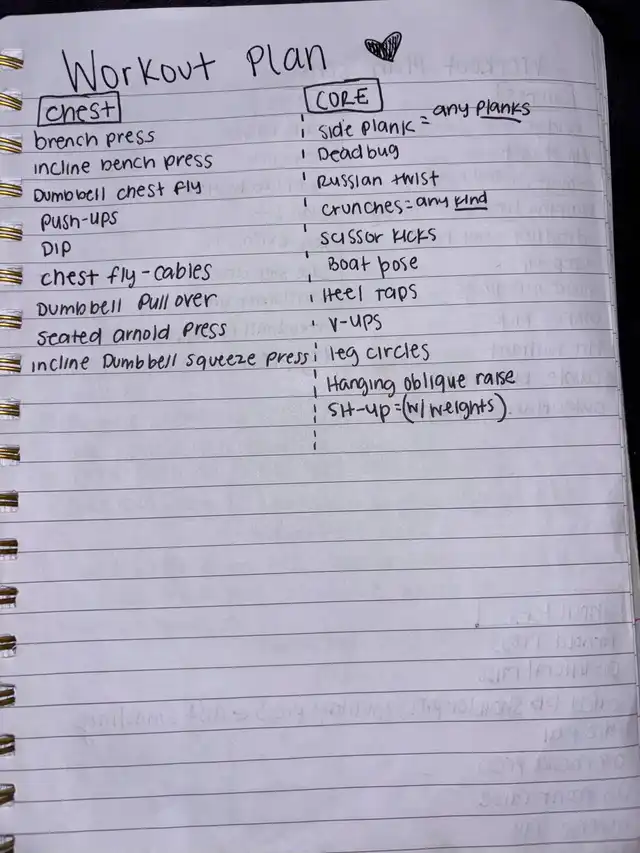 Workout Plan
chest
brench press
incline bench press
Dumbbell chest fly
Push-ups
DIP
chest fly-cables
Dumbbell Pull over
seated arnold Press
incline Dumbbell squeeze press
CORE
side plank = any planks
Deadbug
Russian twist
crunches = any kind
scissor kicks
Boat pose
Heel Taps
V-ups
leg circles
Hanging oblique raise
Sit-up = (w/ weights)